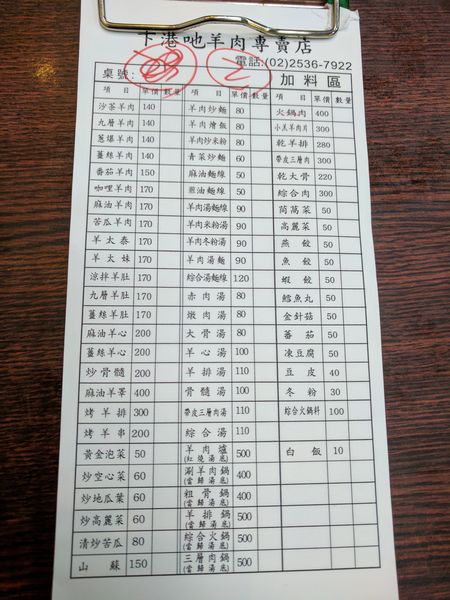 下港吔羊肉專賣店
電話:(02)2536-7922
桌號: 加料區
項目 單價 數量 項目 單價 數量 項目 單價 數量
沙茶羊肉 140 羊肉炒麵 80 火鍋肉 400
九層羊肉 140 羊肉燴飯 80 小羔羊肉片 300
蔥爆羊肉 140 羊肉炒米粉 80 乾羊排 280
薑絲羊肉 140 青菜炒麵 60 帶皮三層肉 300
番茄羊肉 150 麻油麵線 50 乾大骨 220
咖哩羊肉 170 煎油麵線 50 綜合肉 300
麻油羊肉 170 羊肉湯麵線 90 茼萵菜 50
苦瓜羊肉 170 羊肉米粉湯 90 高麗菜 50
羊太泰 170 羊肉冬粉湯 90 燕餃 50
羊太妹 170 羊肉湯麵 90 魚餃 50
涼拌羊肚 170 綜合湯麵線 120 蝦餃 50
九層羊肚 170 赤肉湯 80 鱈魚丸 50
薑絲羊肚 170 燉肉湯 80 金針菇 50
麻油羊心 200 大骨湯 80 蕃茄 50
薑絲羊心 200 羊心湯 100 凍豆腐 50
炒骨髓 200 羊排湯 110 豆皮 40
麻油羊睪 400 骨髓湯 100 冬粉 30
烤羊排 300 帶皮三層肉湯 110 綜合火鍋料 100
烤羊串 200 綜合湯 110
黃金泡菜 50 羊肉爐(紅燒湯底) 500 白飯 10
炒空心菜 60 涮羊肉鍋(當歸湯底) 400
炒地瓜葉 60 粗骨鍋(當歸湯底) 400
炒高麗菜 60 羊排鍋(當歸湯底) 500
清炒苦瓜 80 綜合火鍋(當歸湯底) 500
山蘇 150 三層肉鍋(當歸湯底) 500